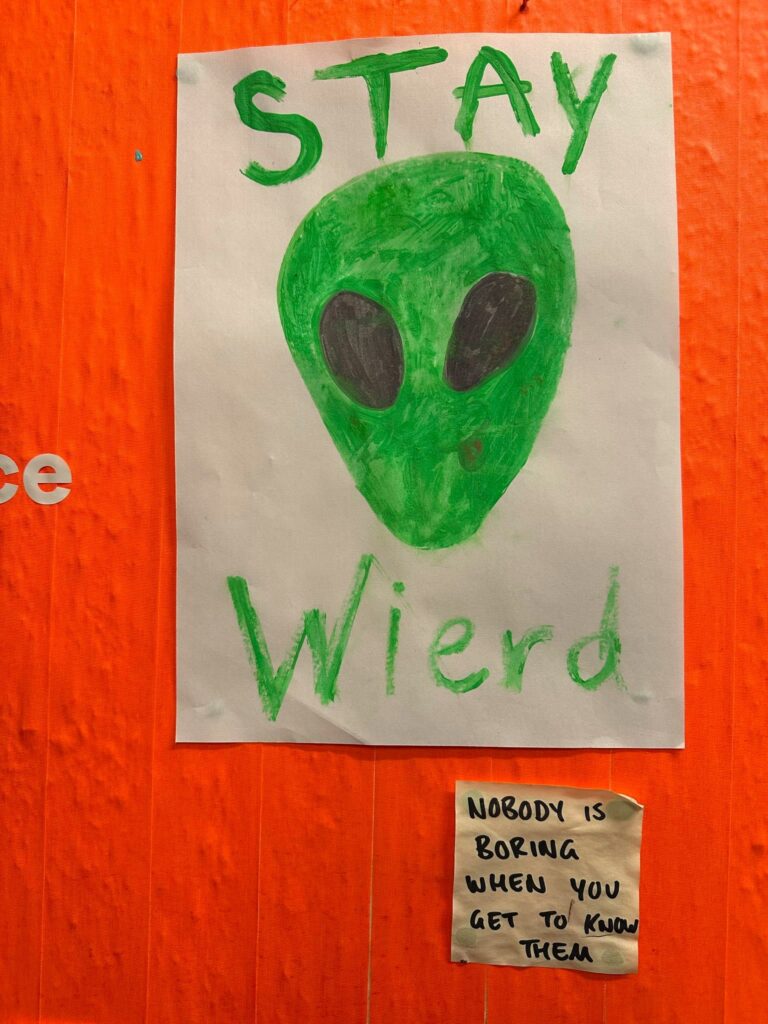 STAY
ce
Wierd
NOBODY IS
BORING
WHEN YOU
GET TO KNOW
THEM